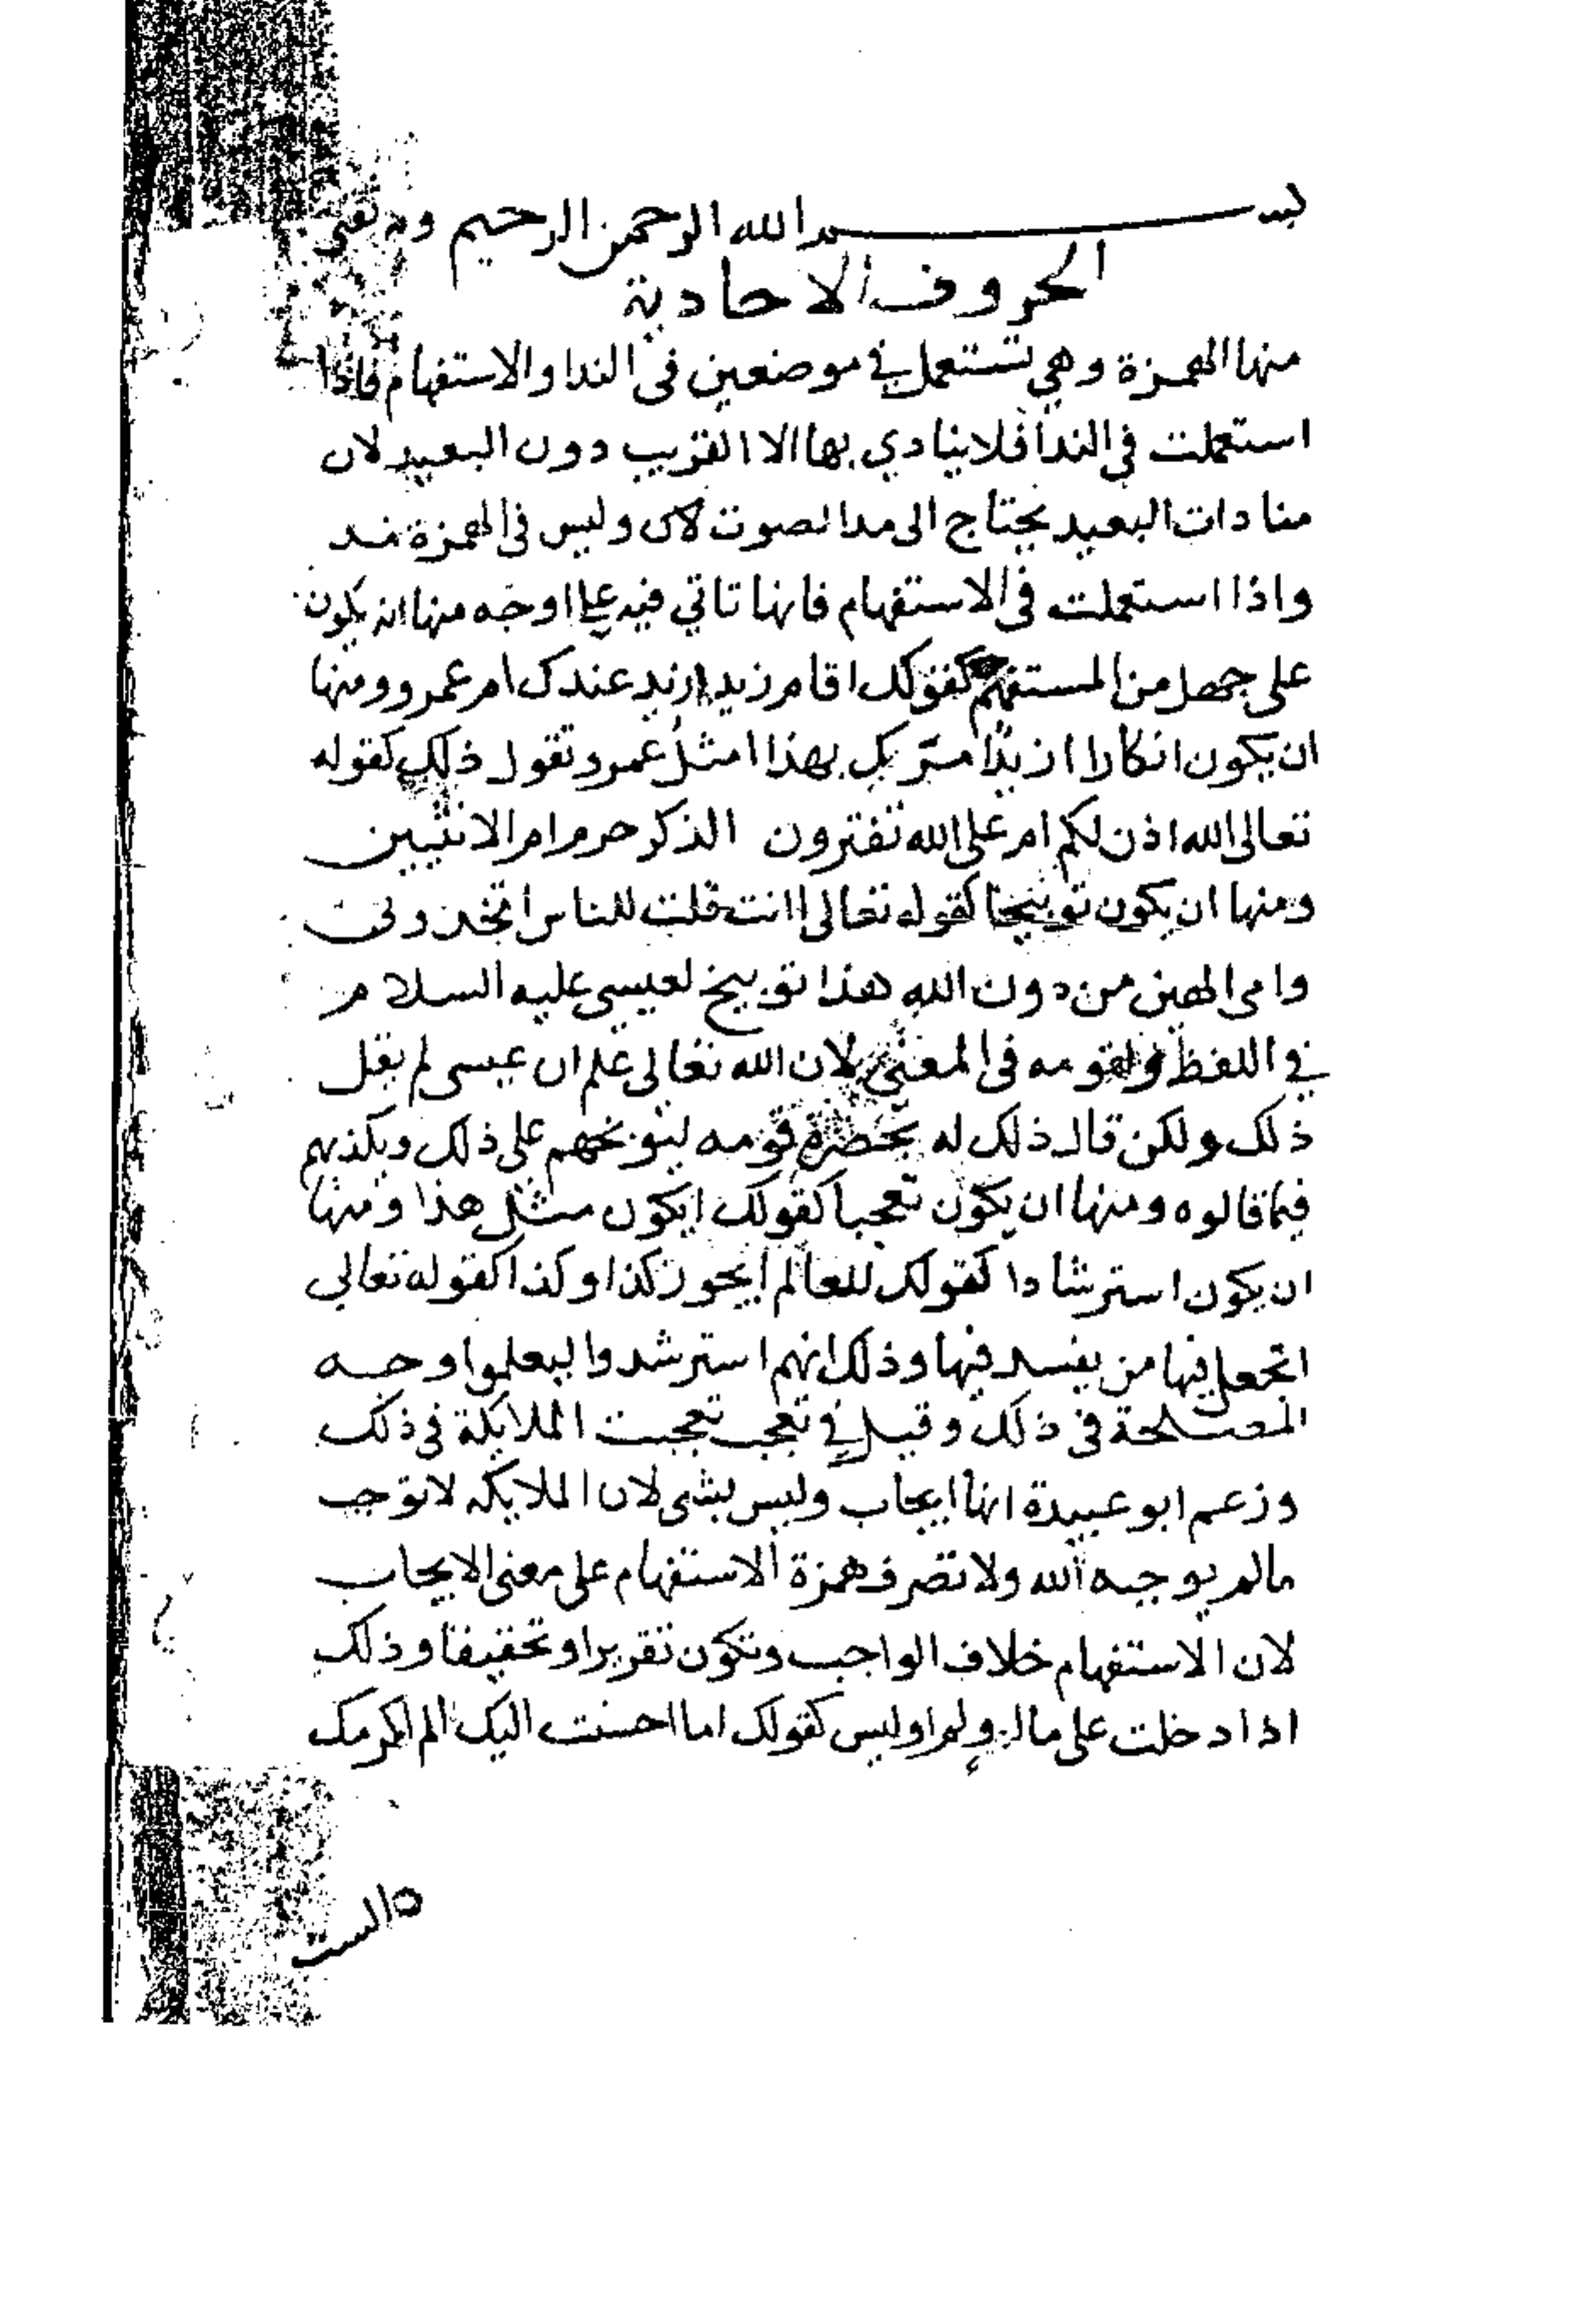 بسم الله الرحمن الرحيم وبه ثقتي
الحروف الاحادية
منها الهمزة وهي تستعمل في موضعين في الندا والاستفهام فاذا
استعملت في الندا فلا ينادي بها الا القريب دون البعيد لان
منادات البعيد يحتاج الى مد الصوت وليس في الهمزة مد
واذا استعملت في الاستفهام فانها تاتي فيه على اوجه منها ان يكون
على جهل من المستفهم كقولك اقام زيد ازيد عندك ام عمرو ومنها
ان يكون انكارا ازيدا مر بك بهذا امثل عمرو تقول ذلك كقوله
تعالى الله اذن لكم ام على الله تفترون الذكر حرم ام الانثيين
ومنها ان يكون توبيخا كقوله تعالى اانت قلت للناس اتخذوني
وامي الهين من دون الله هذا توبيخ لعيسى عليه السلام
في اللفظ ولقومه في المعنى لان الله تعالى علم ان عيسى لم يقل
ذلك ولكن قال ذلك له بحضرة قومه ليوبخهم على ذلك ويكذبهم
فيما قالوه ومنها ان يكون تعجبا كقولك ايكون مثل هذا ومنها
ان يكون استرشادا كقولك للعالم ايجوز كذا وكذا كقوله تعالى
اتجعل فيها من يفسد فيها وذلك انهم استرشدوا ليعلموا وجه
المصلحة في ذلك وقيل في تعجب تعجبت الملايكة في ذلك
وزعم ابو عبيدة انها ايجاب وليس بشى لان الملايكه لا توجب
مالم يوجبه الله ولا تصرف همزة الاستفهام على معنى الايجاب
لان الاستفهام خلاف الواجب وتكون تقريرا وتحقيقا وذلك
اذا دخلت على ما او لم او ليس كقولك اما احسنت اليك الم اكرمك
الست